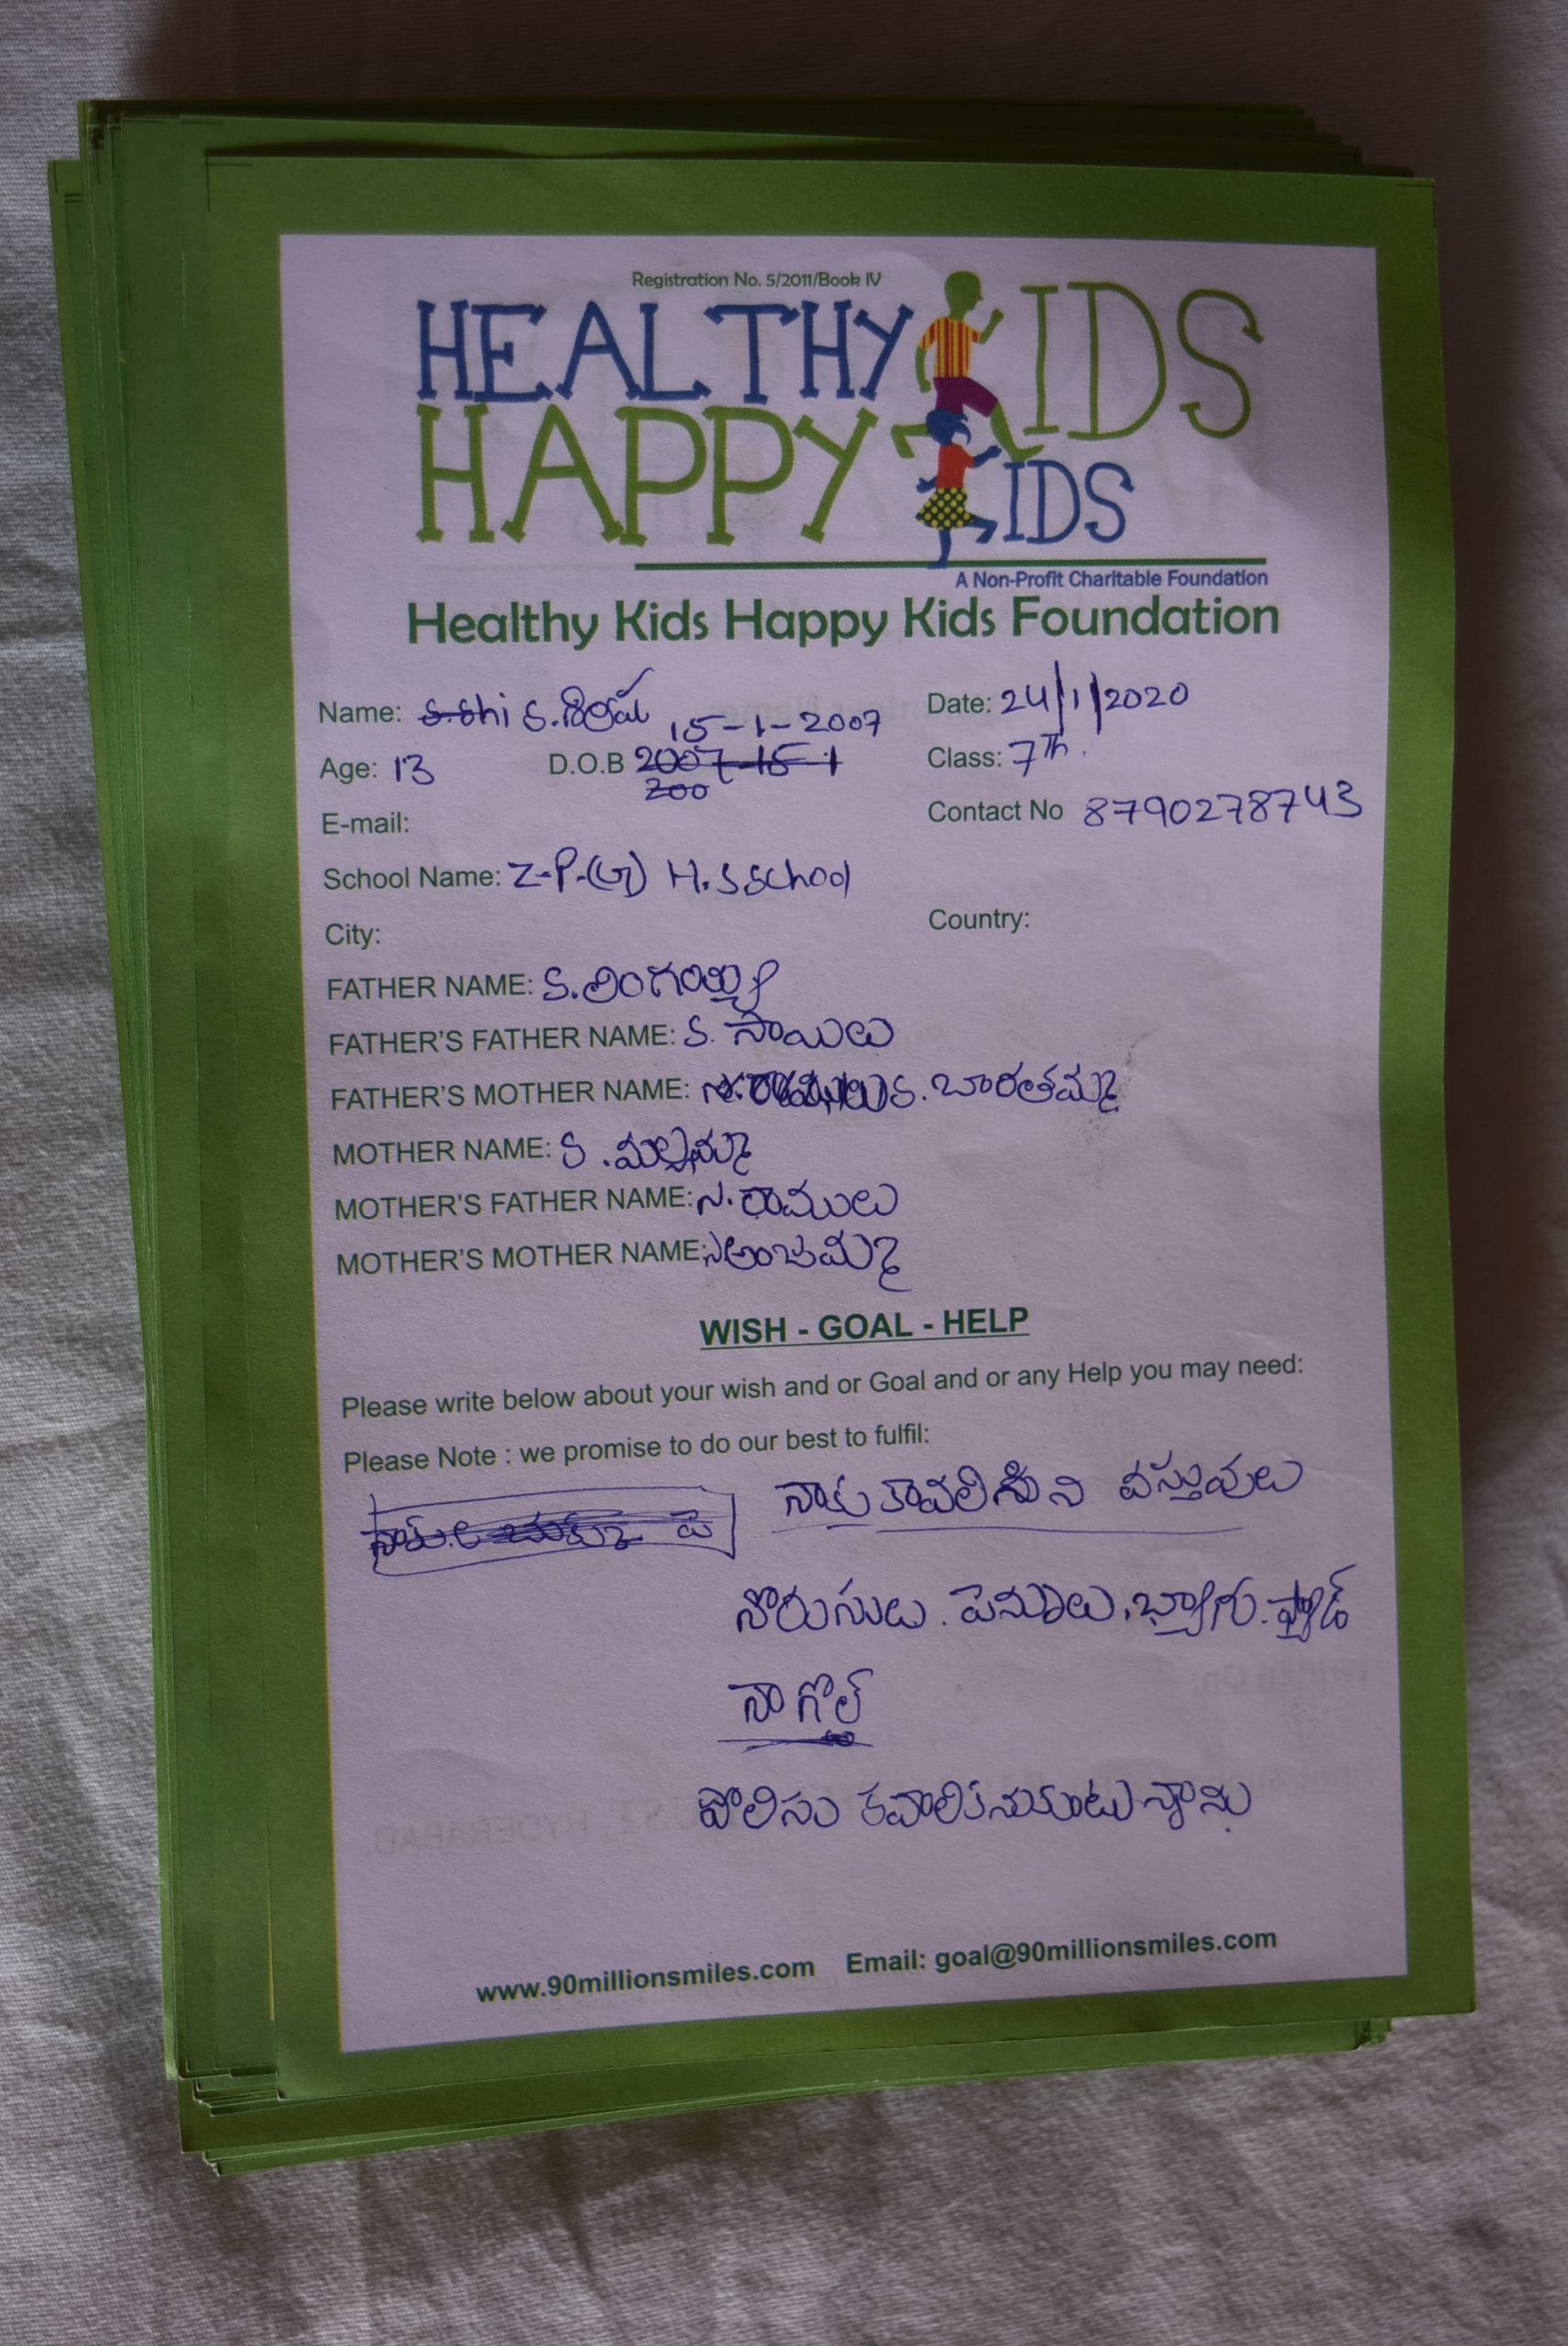 Registration No. 5/2011/Book IV
HEALTHY KIDS
HAPPY KIDS
A Non-Profit Charitable Foundation
Healthy Kids Happy Kids Foundation
Name: S.Shi S.శిల్ప Date: 24/1/2020
15-1-2007
Age: 13 D.O.B 2007-15-1 Class: 7th.
200
E-mail: Contact No 8790278743
School Name: Z.P.(G) H.S School
City: Country:
FATHER NAME: S.లింగయ్య
FATHER'S FATHER NAME: S. సాయిలు
FATHER'S MOTHER NAME: S. బారతమ్మ
MOTHER NAME: S.మల్లమ్మ
MOTHER'S FATHER NAME: N. రాములు
MOTHER'S MOTHER NAME: అంజమ్మ
WISH - GOAL - HELP
Please write below about your wish and or Goal and or any Help you may need:
Please Note : we promise to do our best to fulfil:
నాకు వస్తువులు
నొరుసులు. పెనూలు, బ్యాగు. ప్యాడ్
నా గోల్
పొలిసు కవాలికనుకుంటున్నాను
www.90millionsmiles.com Email: goal@90millionsmiles.com